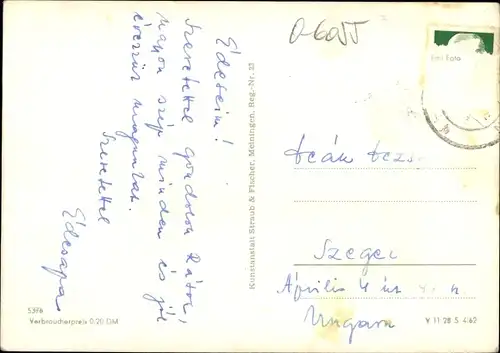 O-6055
Édeseim!
Szeretettel gondolok Rátok!
Nagyon szép minden és jól
érezzük magunkat.
Szeretettel
Édesapa
Kunstanstalt Straub & Fischer, Meiningen, Reg.-Nr. 33
Emil Foto
Deák
Szeged
Április 4 út
Ungarn
Verbraucherpreis 0.20 DM
V 11 28 S 4/62